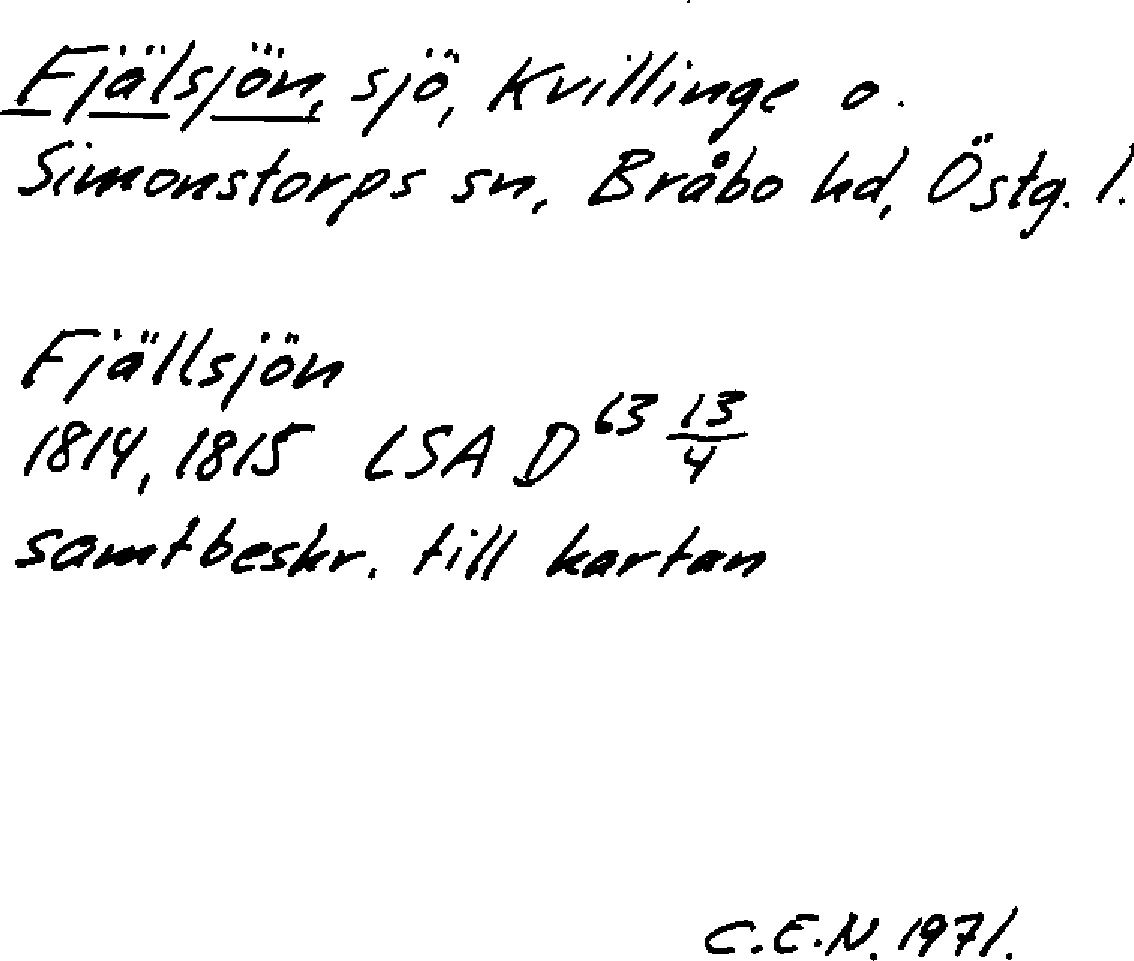 Fjälsjön, sjö, Kvillinge o.
Simonstorps sn, Bråbo hd, Östg. l.
Fjällsjön
1814, 1815 LSA D 63 13/4
samt beskr. till kartan
C.E.N. 1971.